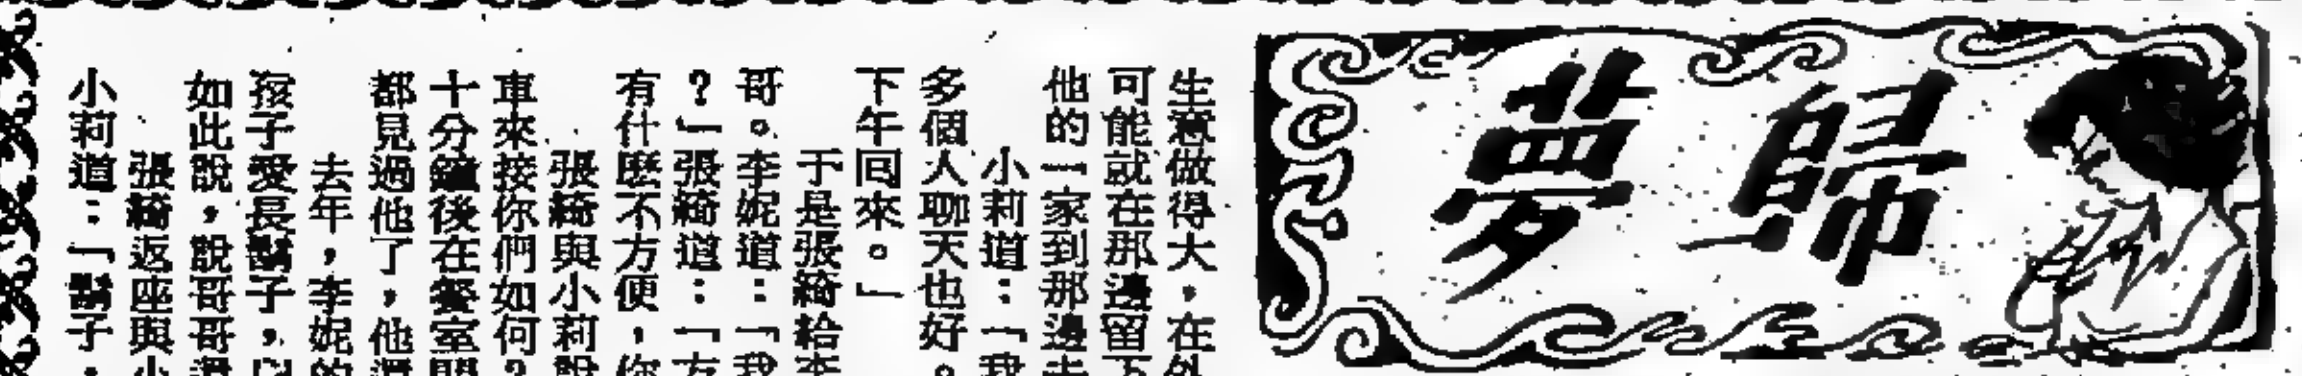 歸夢
生意做得大，在外
可能就在那邊留下
他的一家到那邊去
小莉道：「我
多個人聊天也好。
下午回來。」
于是張綺給李
哥。李妮道：「我
？」張綺道：「方
有什麼不方便，你
張綺與小莉說
車來接你們如何？
十分鐘後在餐室門
都見過他了，他還
去年，李妮的
孩子愛長鬍子，
如此說，說哥哥還
張綺返座與小
小莉道：「鬍子，